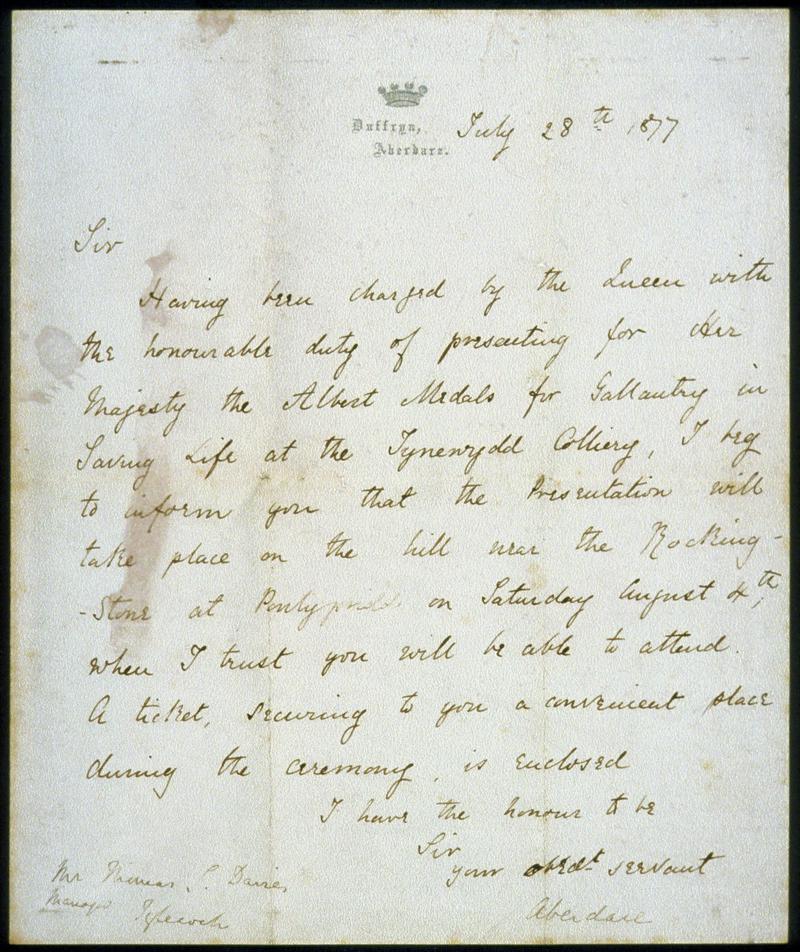 Duffryn,
Aberdare.
July 28th 1877
Sir
Having been charged by the Queen with
the honourable duty of presenting for Her
Majesty the Albert Medals for Gallantry in
Saving Life at the Tynewydd Colliery, I beg
to inform you that the Presentation will
take place on the hill near the Rocking-
-Stone at Pontypridd on Saturday August 4th,
when I trust you will be able to attend.
A ticket, securing to you a convenient place
during the ceremony, is enclosed
I have the honour to be
Sir
your obedt servant
Aberdare
Mr Thomas Davies
Manager